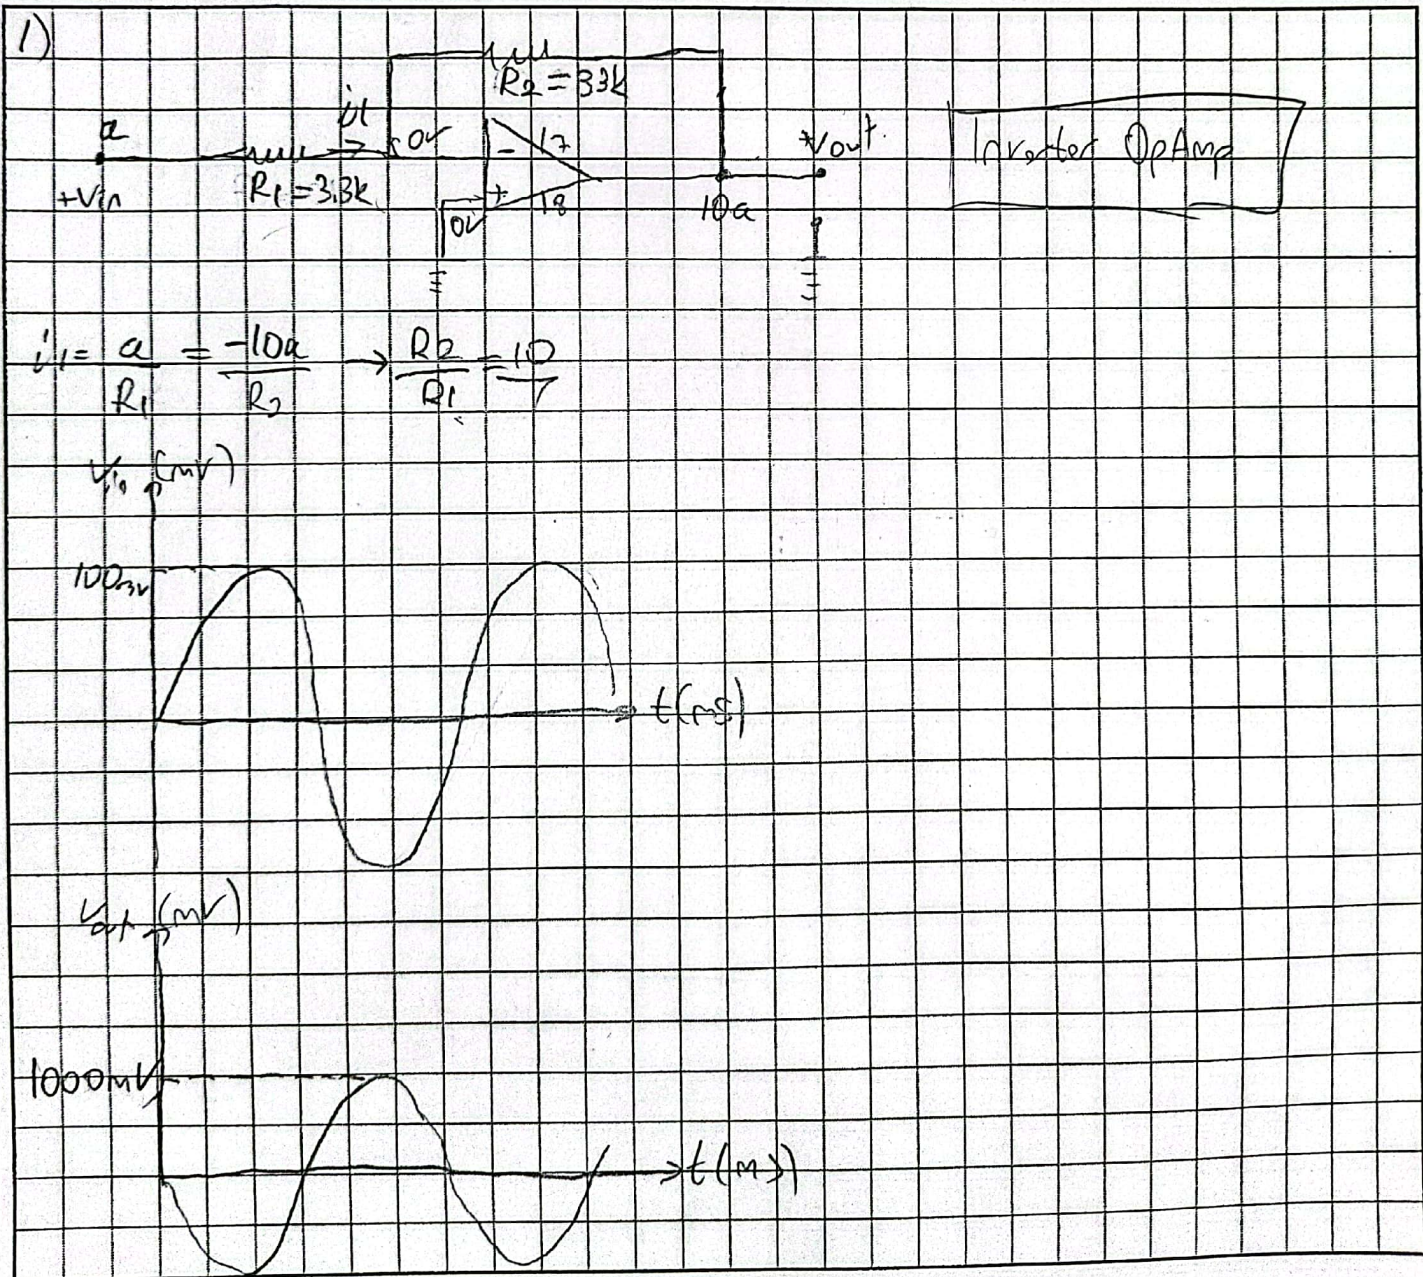 1)
R2 = 33k
a
i1
0V
- 17
+Vout
Inverter OpAmp
+Vin
R1 = 3.3k
+ 18
0V
10a
i1 = a/R1 = -10a/R2 → R2/R1 = 10
Vin (mV)
100mV
t(ms)
Vout (mV)
1000mV
t(ms)